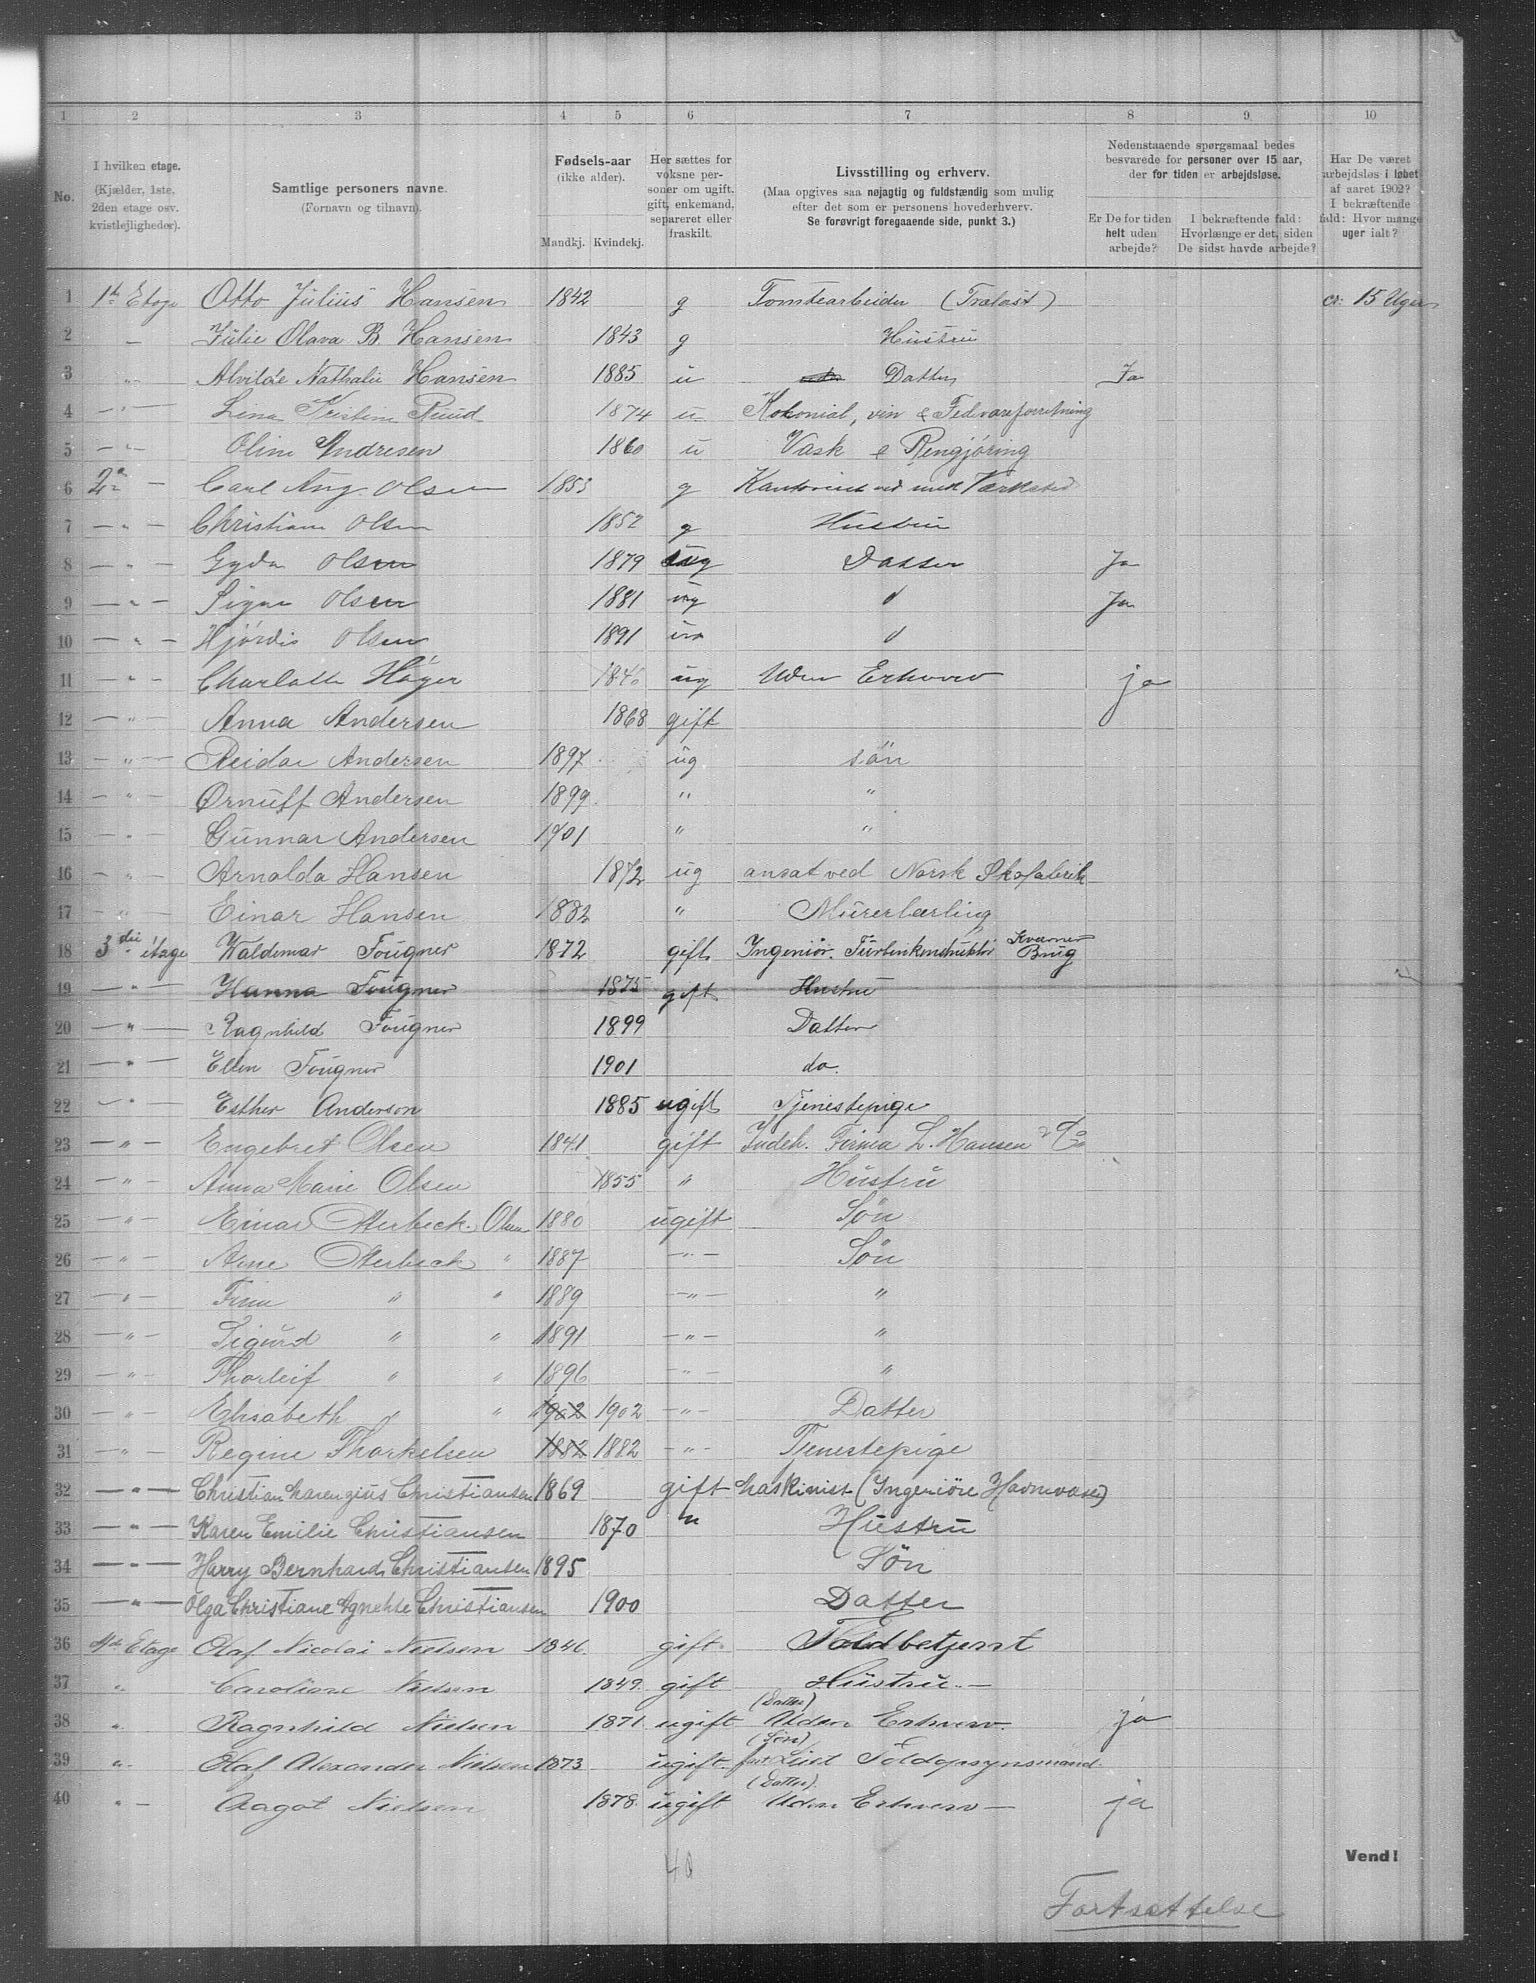 1 2 3 4 5 6 7 8 9 10
No.
I hvilken etage. (Kjælder, 1ste, 2den etage osv. kvistlejligheder).
Samtlige personers navne. (Fornavn og tilnavn).
Fødsels-aar (ikke alder). Mandkj. Kvindekj.
Her sættes for voksne personer om ugift, gift, enkemand, separeret eller fraskilt.
Livsstilling og erhverv. (Maa opgives saa nøjagtig og fuldstændig som mulig efter det som er personens hovederhverv. Se forøvrigt foregaaende side, punkt 3.)
Nedenstaaende spørgsmaal bedes besvarede for personer over 15 aar, der for tiden er arbejdsløse.
Er De for tiden helt uden arbejde?
I bekræftende fald: Hvorlænge er det, siden De sidst havde arbejde?
Har De været arbejdsløs i løbet af aaret 1902? I bekræftende fald: Hvor mange uger ialt?
1 1ste Etage Otto Julius Hansen 1842 g Tomtearbeider (Trælast) ci. 15 Uger
2 — Julie Olava B. Hansen 1843 g Hustru
3 " Alvilde Nathalie Hansen 1885 u Datter Ja
4 — " — Lina Kristine Ruud 1874 u Kolonial, vin & Fedvareforretning
5 — " — Oline Andresen 1860 u Vask & Rengjøring
6 2n — Carl Aug. Olsen 1853 g
7 — " — Christiane Olsen 1852 g Hustru
8 — " — Gyda Olsen 1879 ug Datter Ja
9 — " — Signe Olsen 1881 ug d Ja
10 — " — Hjördis Olsen 1891 d
11 — " — Charlotte Höyer 1846 ug Uden Erhverv ja
12 — " — Anna Andersen 1868 gift
13 — " — Reidar Andersen 1897 ug sön
14 — " — Ørnulf Andersen 1899 " "
15 — " — Gunnar Andersen 1901 " "
16 — " — Arnalda Hansen 1872 ug ansat ved Norsk Skofabrik
17 — " — Einar Hansen 1882 " Murerlærling
18 3die etage Waldemar Fougner 1872 gift Ingeniör. Turbinkonstruktör Kværner Brug
19 — " — Hanna Fougner 1875 gift Hustru
20 — " — Ragnhild Fougner 1899 Datter
21 — " — Ellen Fougner 1901 do.
22 — " — Esther Anderson 1885 ugift Tjenestepige
23 — " — Engebret Olsen 1841 gift Indeh. Firma L. Hansen & Co
24 — " — Anna Marie Olsen 1855 " Hustru
25 — " — Einar Otterbeck Olsen 1880 ugift Søn
26 — " — Arne Otterbeck " 1887 — " — Søn
27 — " — Finn " " 1889 — " — "
28 — " — Sigurd " " 1891 — " — "
29 — " — Thorleif " " 1896 — " — "
30 — " Elisabeth " " 1902 1902 — " — Datter
31 — " — Regine Thorkelsen 1882 1882 — " — Tjenestepige
32 — " — Christian Larenzius Christiansen 1869 gift Maskinist (Ingeniöre Havnvæsen)
33 — " — Karen Emilie Christiansen 1870 " Hustru
34 — " — Harry Bernhard Christiansen 1895 Sön
35 — " — Olga Christiane Agnethe Christiansen 1900 Datter
36 4de Etage Olaf Nicolai Nielsen 1846 gift Toldbetjent
37 " Caroline Nielsen 1849 gift Hustru. —
38 " Ragnhild Nielsen 1871 ugift (Datter) Uden Erhverv. ja
39 " Olaf Alexander Nielsen 1873 ugift (Sön) Toldopsynsmand.
40 " — Aagot Nielsen 1878 ugift (Datter) Uden Erhverv — ja
40
Vend!
Fortsættelse